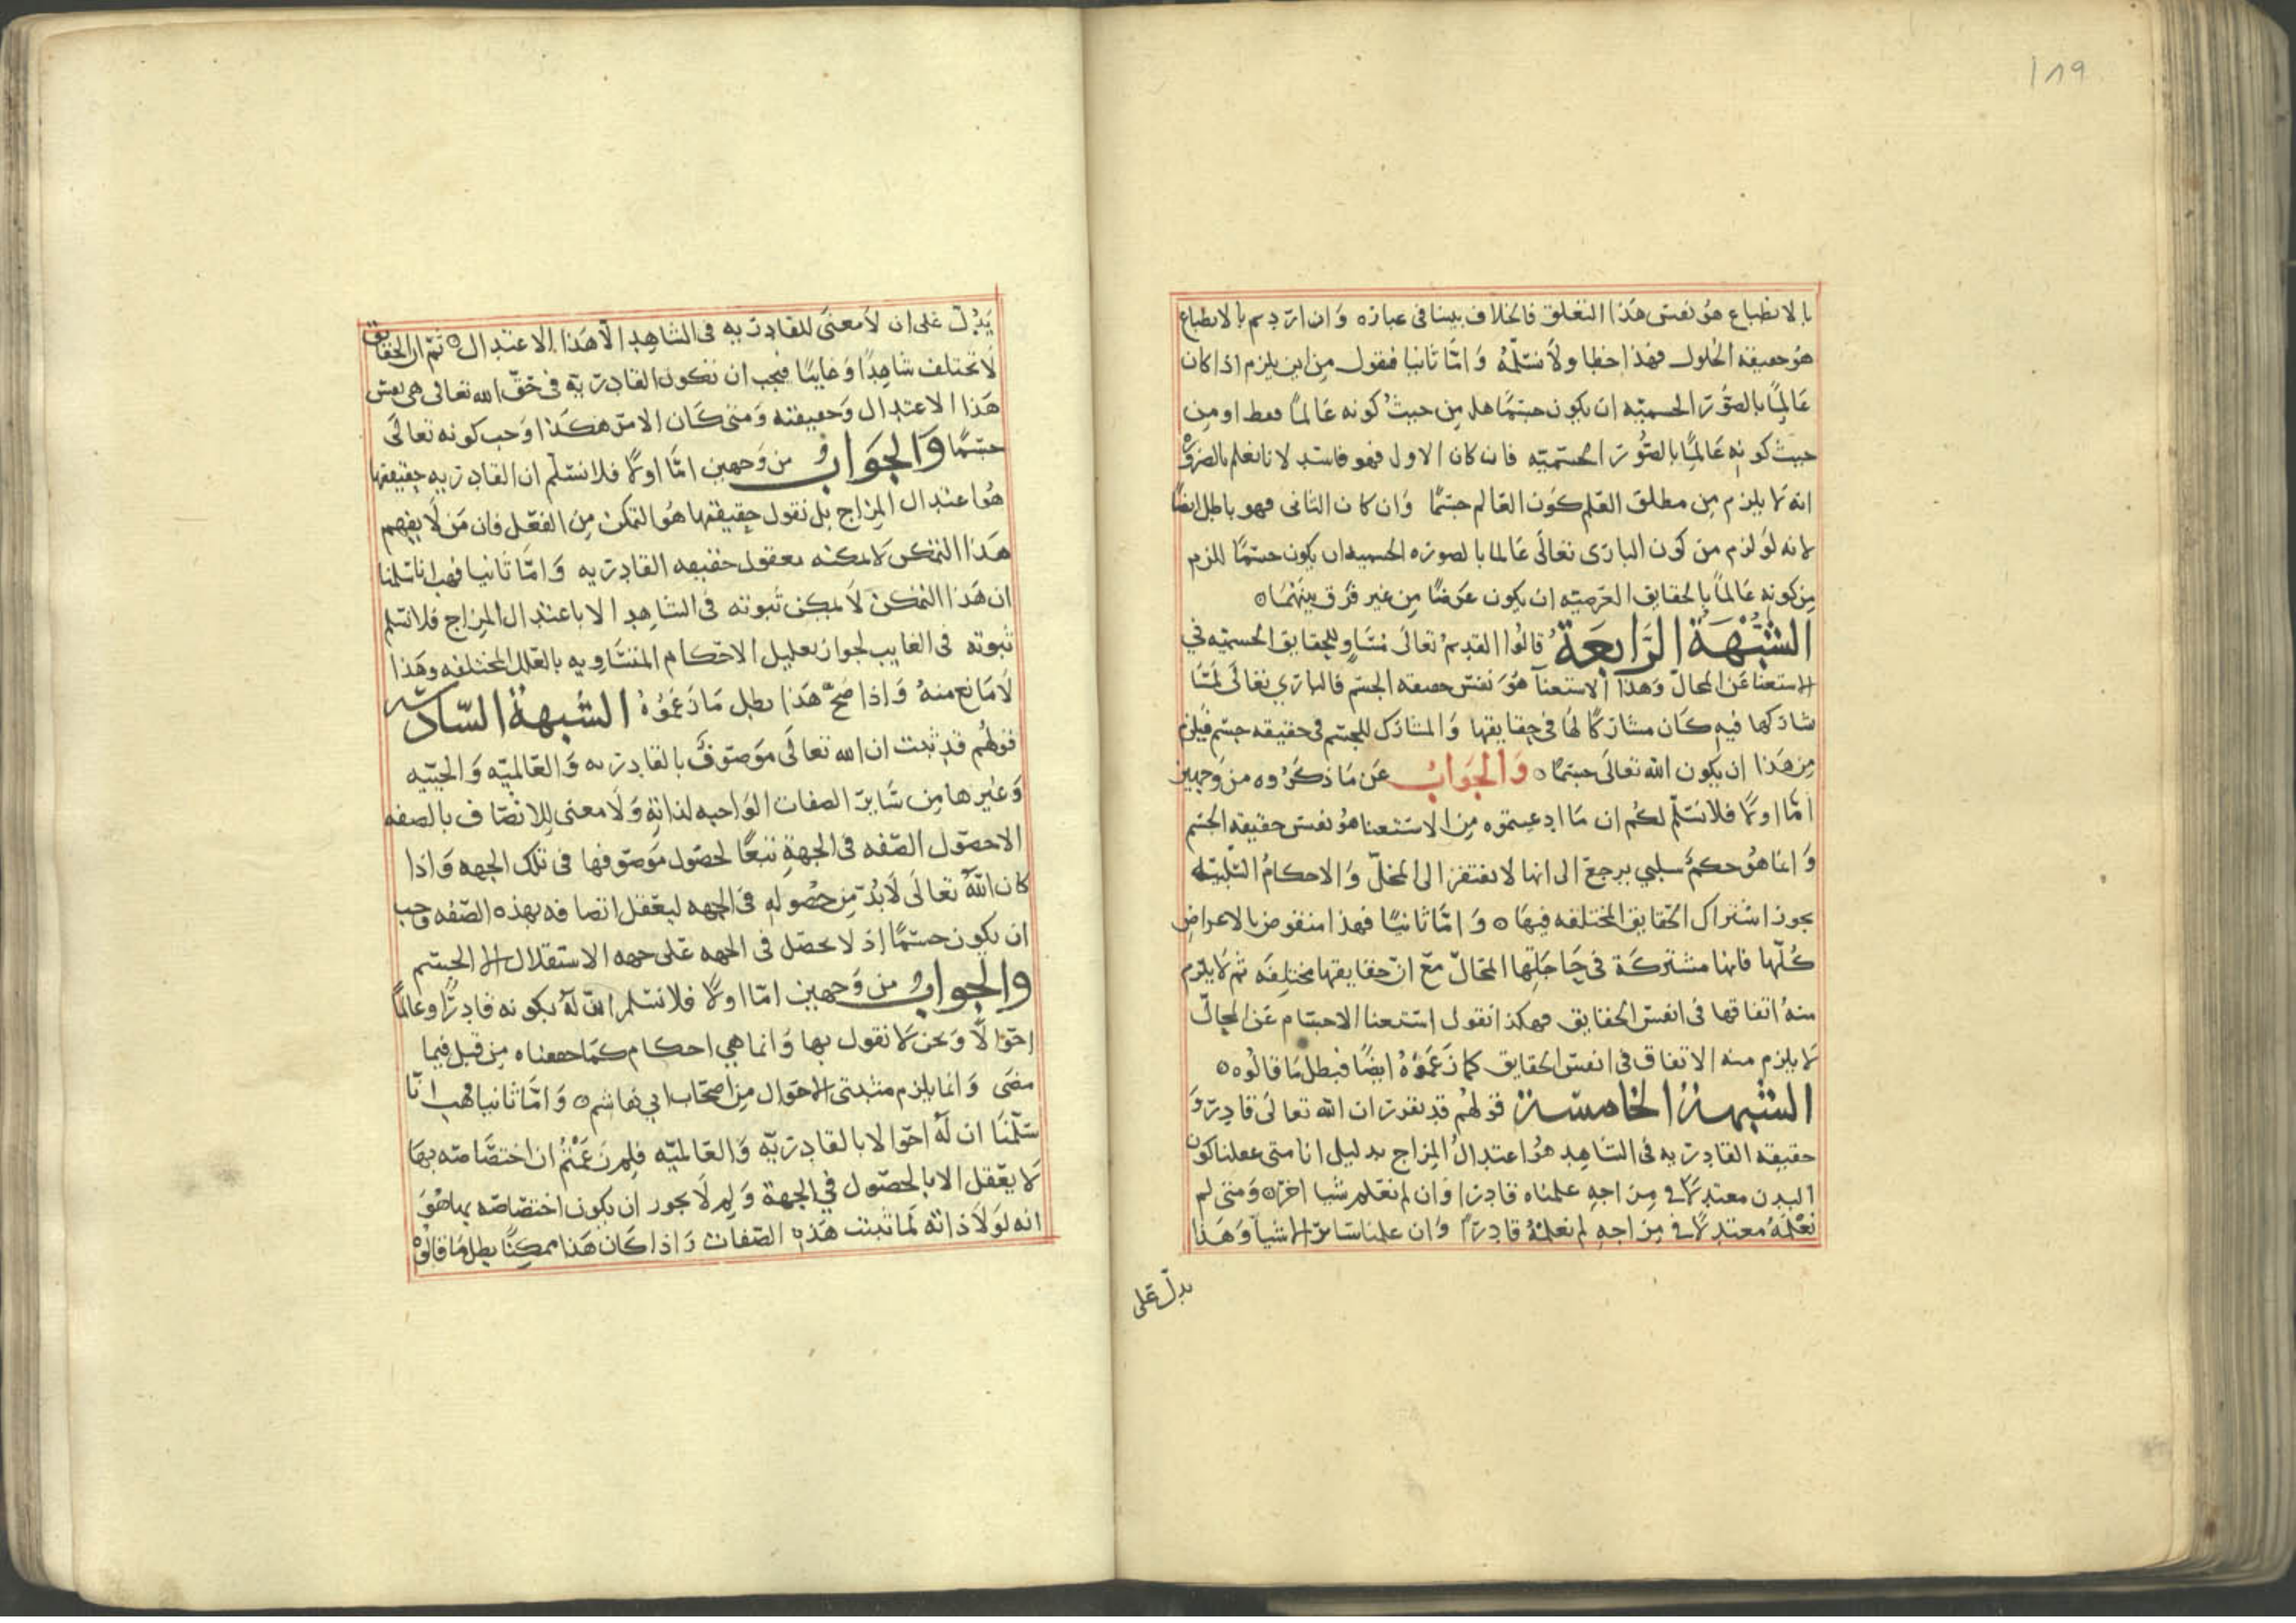 ١٨٩
بالانطباع هو نفس هذا التعلق فالخلاف بيننا في عباره وان اردتم بالانطباع
هو حقيقه الحلول فهذا خطا ولا نسلمه واما ثانيا فنقول من اين يلزم اذا كان
عالما بالصور الجسميه ان يكون جسما هل من حيث كونه عالما فقط او من
حيث كونه عالما بالصور الجسميه فان كان الاول فهو فاسد لانا نعلم بالضروره
انه لا يلزم من مطلق العلم كون العالم جسما وان كان الثاني فهو باطل ايضا
لانه لو لزم من كون الباري تعالى عالما بالصوره الجسميه ان يكون جسما للزم
من كونه عالما بالحقايق العرضيه ان يكون عرضا من غير فرق بينهما ه
الشبهة الرابعة قالوا القديم تعالى مساو للحقايق الجسميه في
الاستغنا عن المحال وهذا الاستغنآ هو نفس حقيقه الجسم فالباري تعالى لما
شاركها فيه كان مشاركا لها في حقايقها والمشارك للجسم في حقيقه جسم فيلزم
من هذا ان يكون الله تعالى جسما ه والجواب عن ما ذكروه من وجهين
اما اولا فلا نسلم لكم ان ما ادعيتموه من الاستغنا هو نفس حقيقه الجسم
وانما هو حكم سلبي يرجع الى انها لا تفتقر الى المحل والاحكام السلبيه
يجوز اشتراك الحقايق المختلفه فيها ه واما ثانيا فهذا منقوض بالاعراض
كلها فانها مشتركة في حاجتها المحال مع ان حقايقها مختلفه ثم لا يلزم
منه اتفاقها في انفس الحقايق فهكذا نقول استغنا الاجسام عن المحال
لا يلزم منه الاتفاق في انفس الحقايق كما زعموه ايضا فبطل ما قالوه ه
الشبهة الخامسة قولهم قد تقرر ان الله تعالى قادر و
حقيقه القادريه في الشاهد هو اعتدال المزاج بدليل انا متى عقلنا كون
البدن معتدلا في مزاجه علمناه قادرا وان لم نعلم شيا اخر ه ومتى لم
نعلمه معتدلا في مزاجه لم نعلمه قادرا وان علمنا سائر الاشيآ وهذا
يدل على
يدل على ان لا معنى للقادريه في الشاهد الا هذا الاعتدال ه ثم ان الحقايق
لا تختلف شاهدا وغايبا فيجب ان تكون القادريه في حق الله تعالى هي نفس
هذا الاعتدال وحقيقته ومتى كان الامر هكذا وجب كونه تعالى
جسما والجواب من وجهين اما اولا فلا نسلم ان القادريه حقيقتها
هو اعتدال المزاج بل نقول حقيقتها هو التمكن من الفعل فان من لا يفهم
هذا التمكن لا يمكنه تعقل حقيقه القادريه واما ثانيا فهب انا سلمنا
ان هذا التمكن لا يمكن ثبوته في الشاهد الا باعتدال المزاج فلا نسلم
ثبوته في الغايب لجواز تعليل الاحكام المتساويه بالعلل المختلفه وهذا
لا مانع منه واذا صح هذا بطل ما زعموه الشبهة السادسه
قولهم قد ثبت ان الله تعالى موصوف بالقادريه والعالميه والحييه
وغيرها من سائر الصفات الواجبه لذاته ولا معنى للاتصاف بالصفه
الا حصول الصفه في الجهة تبعا لحصول موصوفها في تلك الجهه واذا
كان الله تعالى لا بد من حصوله في الجهه ليعقل اتصافه بهذه الصفه وجب
ان يكون جسما اذ لا يحصل في الجهه على جهه الاستقلال الا الجسم
والجواب من وجهين اما اولا فلا نسلم ان له بكونه قادرا وعالما
احوالا ونحن لا نقول بها وانما هي احكام كما حققناه من قبل فيما
مضى وانما يلزم مثبتي الاحوال من اصحاب ابي هاشم ه واما ثانيا فهب انا
سلمنا ان له احوالا بالقادريه والعالميه فلم زعمتم ان اختصاصه بها
لا يعقل الا بالحصول في الجهة ولم لا يجوز ان يكون اختصاصه بها هو
انه لولا ذاته لما ثبتت هذه الصفات واذا كان هذا ممكنا بطل ما قالوه